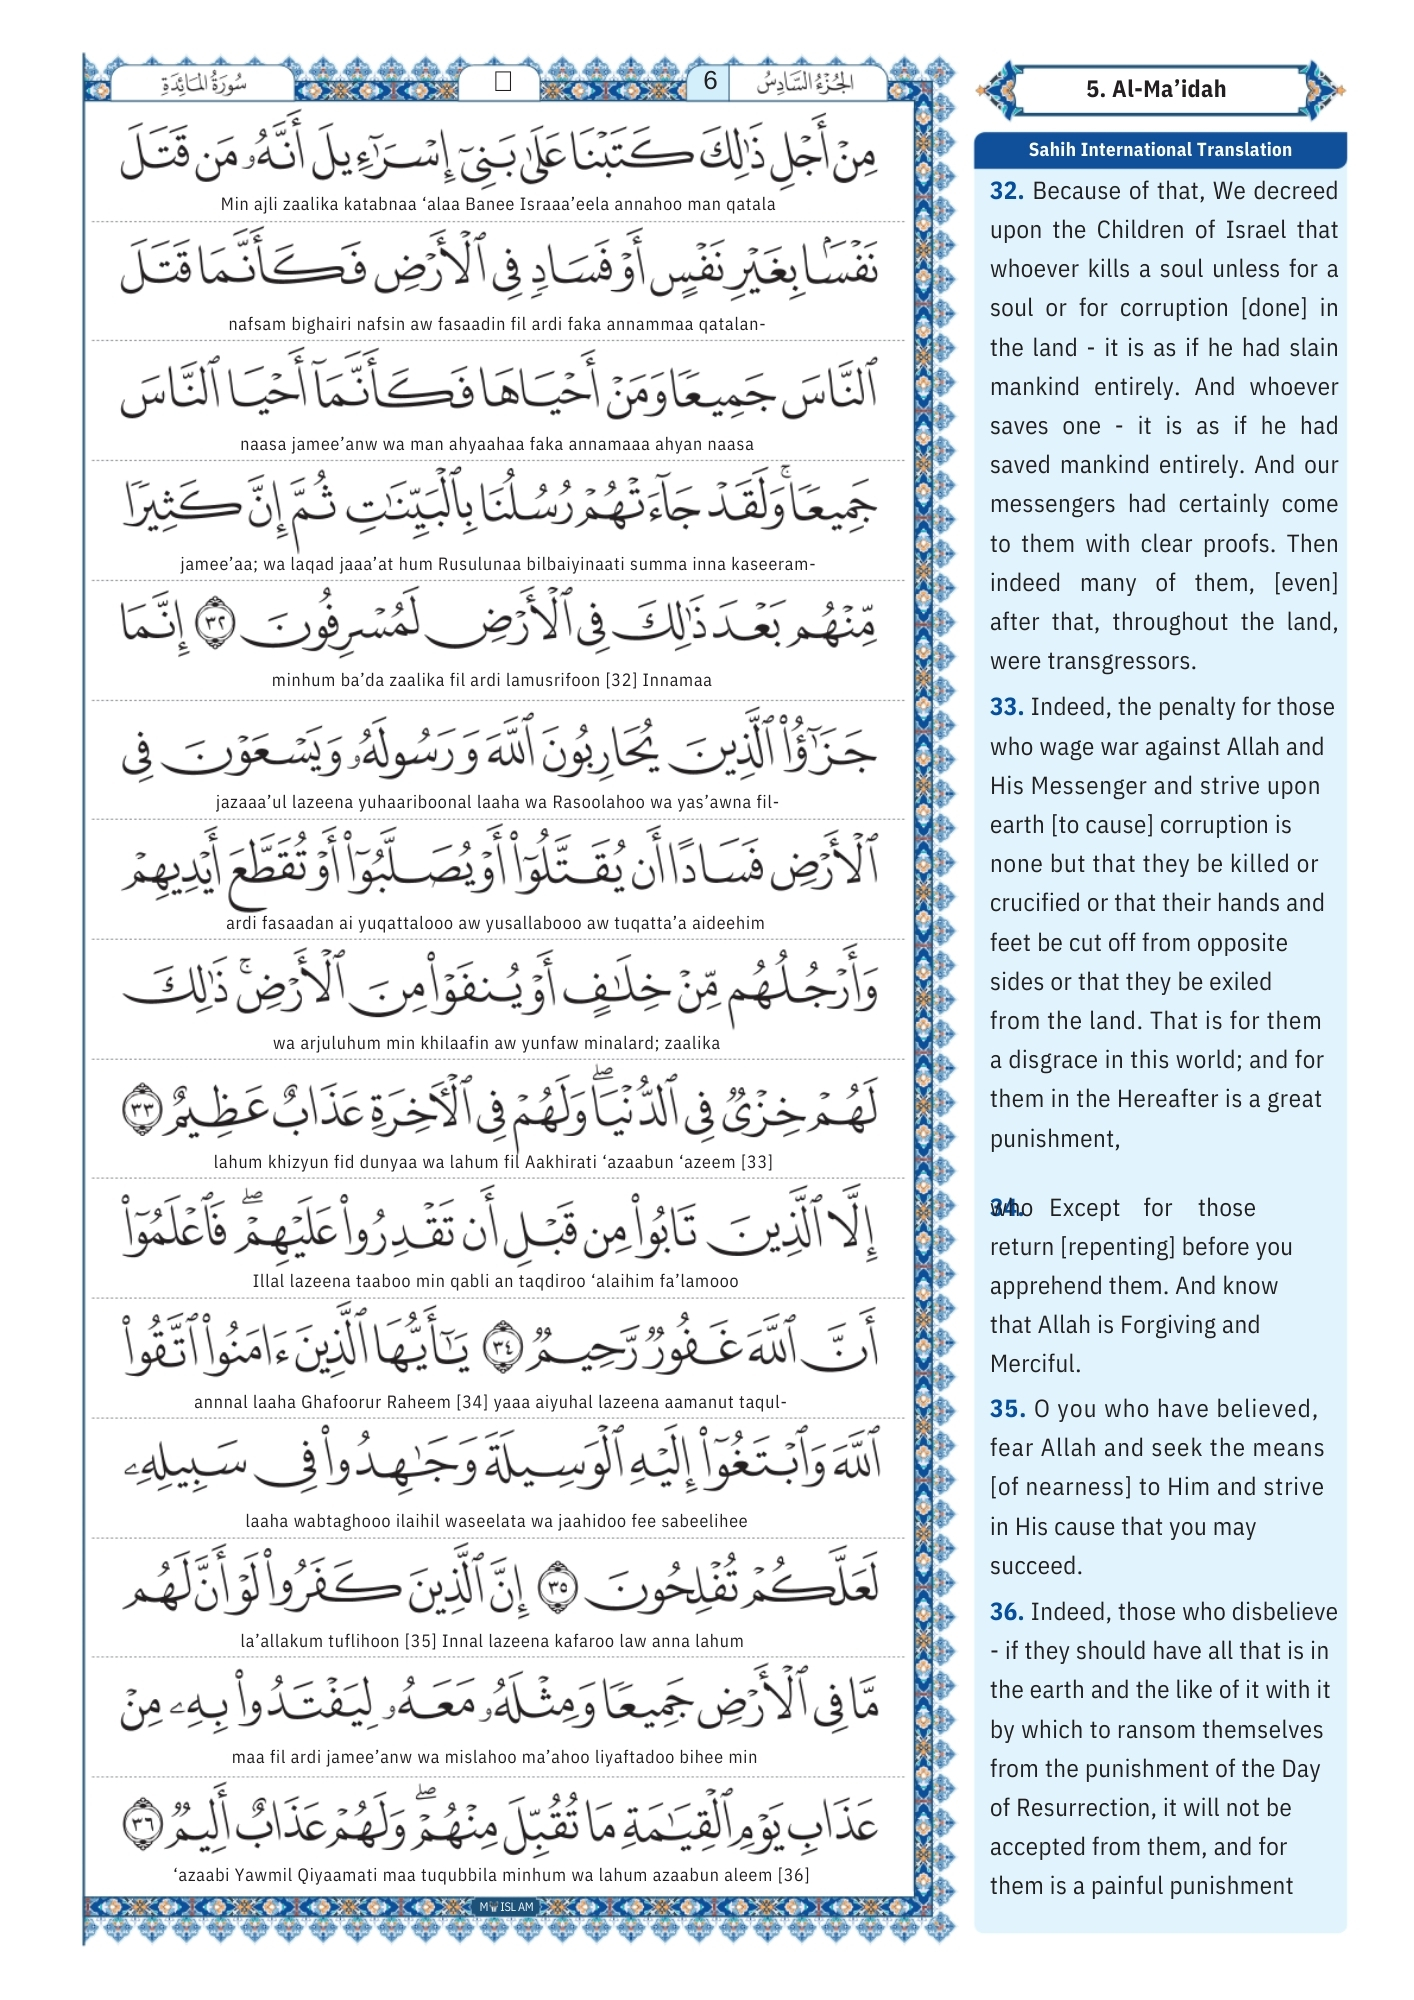 سُورَةُ المَائـِدَةِ
6
الجُزْءُ السَّادِسُ
مِنْ أَجْلِ ذَٰلِكَ كَتَبْنَا عَلَىٰ بَنِىٓ إِسْرَٰٓءِيلَ أَنَّهُۥ مَن قَتَلَ
Min ajli zaalika katabnaa ‘alaa Banee Israaa’eela annahoo man qatala
نَفْسًۢا بِغَيْرِ نَفْسٍ أَوْ فَسَادٍ فِى ٱلْأَرْضِ فَكَأَنَّمَا قَتَلَ
nafsam bighairi nafsin aw fasaadin fil ardi faka annammaa qatalan-
ٱلنَّاسَ جَمِيعًا وَمَنْ أَحْيَاهَا فَكَأَنَّمَآ أَحْيَا ٱلنَّاسَ
naasa jamee’anw wa man ahyaahaa faka annamaaa ahyan naasa
جَمِيعًا ۚ وَلَقَدْ جَآءَتْهُمْ رُسُلُنَا بِٱلْبَيِّنَٰتِ ثُمَّ إِنَّ كَثِيرًا
jamee’aa; wa laqad jaaa’at hum Rusulunaa bilbaiyinaati summa inna kaseeram-
مِّنْهُم بَعْدَ ذَٰلِكَ فِى ٱلْأَرْضِ لَمُسْرِفُونَ ٣٢ إِنَّمَا
minhum ba’da zaalika fil ardi lamusrifoon [32] Innamaa
جَزَٰٓؤُا۟ ٱلَّذِينَ يُحَارِبُونَ ٱللَّهَ وَرَسُولَهُۥ وَيَسْعَوْنَ فِى
jazaaa’ul lazeena yuhaariboonal laaha wa Rasoolahoo wa yas’awna fil-
ٱلْأَرْضِ فَسَادًا أَن يُقَتَّلُوٓا۟ أَوْ يُصَلَّبُوٓا۟ أَوْ تُقَطَّعَ أَيْدِيهِمْ
ardi fasaadan ai yuqattalooo aw yusallabooo aw tuqatta’a aideehim
وَأَرْجُلُهُم مِّنْ خِلَٰفٍ أَوْ يُنفَوْا۟ مِنَ ٱلْأَرْضِ ۚ ذَٰلِكَ
wa arjuluhum min khilaafin aw yunfaw minalard; zaalika
لَهُمْ خِزْىٌ فِى ٱلدُّنْيَا ۖ وَلَهُمْ فِى ٱلْءَاخِرَةِ عَذَابٌ عَظِيمٌ ٣٣
lahum khizyun fid dunyaa wa lahum fil Aakhirati ‘azaabun ‘azeem [33]
إِلَّا ٱلَّذِينَ تَابُوا۟ مِن قَبْلِ أَن تَقْدِرُوا۟ عَلَيْهِمْ ۖ فَٱعْلَمُوٓا۟
Illal lazeena taaboo min qabli an taqdiroo ‘alaihim fa’lamooo
أَنَّ ٱللَّهَ غَفُورٌ رَّحِيمٌ ٣٤ يَٰٓأَيُّهَا ٱلَّذِينَ ءَامَنُوا۟ ٱتَّقُوا۟
annnal laaha Ghafoorur Raheem [34] yaaa aiyuhal lazeena aamanut taqul-
ٱللَّهَ وَٱبْتَغُوٓا۟ إِلَيْهِ ٱلْوَسِيلَةَ وَجَٰهِدُوا۟ فِى سَبِيلِهِۦ
laaha wabtaghooo ilaihil waseelata wa jaahidoo fee sabeelihee
لَعَلَّكُمْ تُفْلِحُونَ ٣٥ إِنَّ ٱلَّذِينَ كَفَرُوا۟ لَوْ أَنَّ لَهُم
la’allakum tuflihoon [35] Innal lazeena kafaroo law anna lahum
مَّا فِى ٱلْأَرْضِ جَمِيعًا وَمِثْلَهُۥ مَعَهُۥ لِيَفْتَدُوا۟ بِهِۦ مِنْ
maa fil ardi jamee’anw wa mislahoo ma’ahoo liyaftadoo bihee min
عَذَابِ يَوْمِ ٱلْقِيَٰمَةِ مَا تُقُبِّلَ مِنْهُمْ ۖ وَلَهُمْ عَذَابٌ أَلِيمٌ ٣٦
‘azaabi Yawmil Qiyaamati maa tuqubbila minhum wa lahum azaabun aleem [36]
5. Al-Ma’idah
Sahih International Translation
32. Because of that, We decreed
upon the Children of Israel that
whoever kills a soul unless for a
soul or for corruption [done] in
the land - it is as if he had slain
mankind entirely. And whoever
saves one - it is as if he had
saved mankind entirely. And our
messengers had certainly come
to them with clear proofs. Then
indeed many of them, [even]
after that, throughout the land,
were transgressors.
33. Indeed, the penalty for those
who wage war against Allah and
His Messenger and strive upon
earth [to cause] corruption is
none but that they be killed or
crucified or that their hands and
feet be cut off from opposite
sides or that they be exiled
from the land. That is for them
a disgrace in this world; and for
them in the Hereafter is a great
punishment,
34. who Except for those
return [repenting] before you
apprehend them. And know
that Allah is Forgiving and
Merciful.
35. O you who have believed,
fear Allah and seek the means
[of nearness] to Him and strive
in His cause that you may
succeed.
36. Indeed, those who disbelieve
- if they should have all that is in
the earth and the like of it with it
by which to ransom themselves
from the punishment of the Day
of Resurrection, it will not be
accepted from them, and for
them is a painful punishment